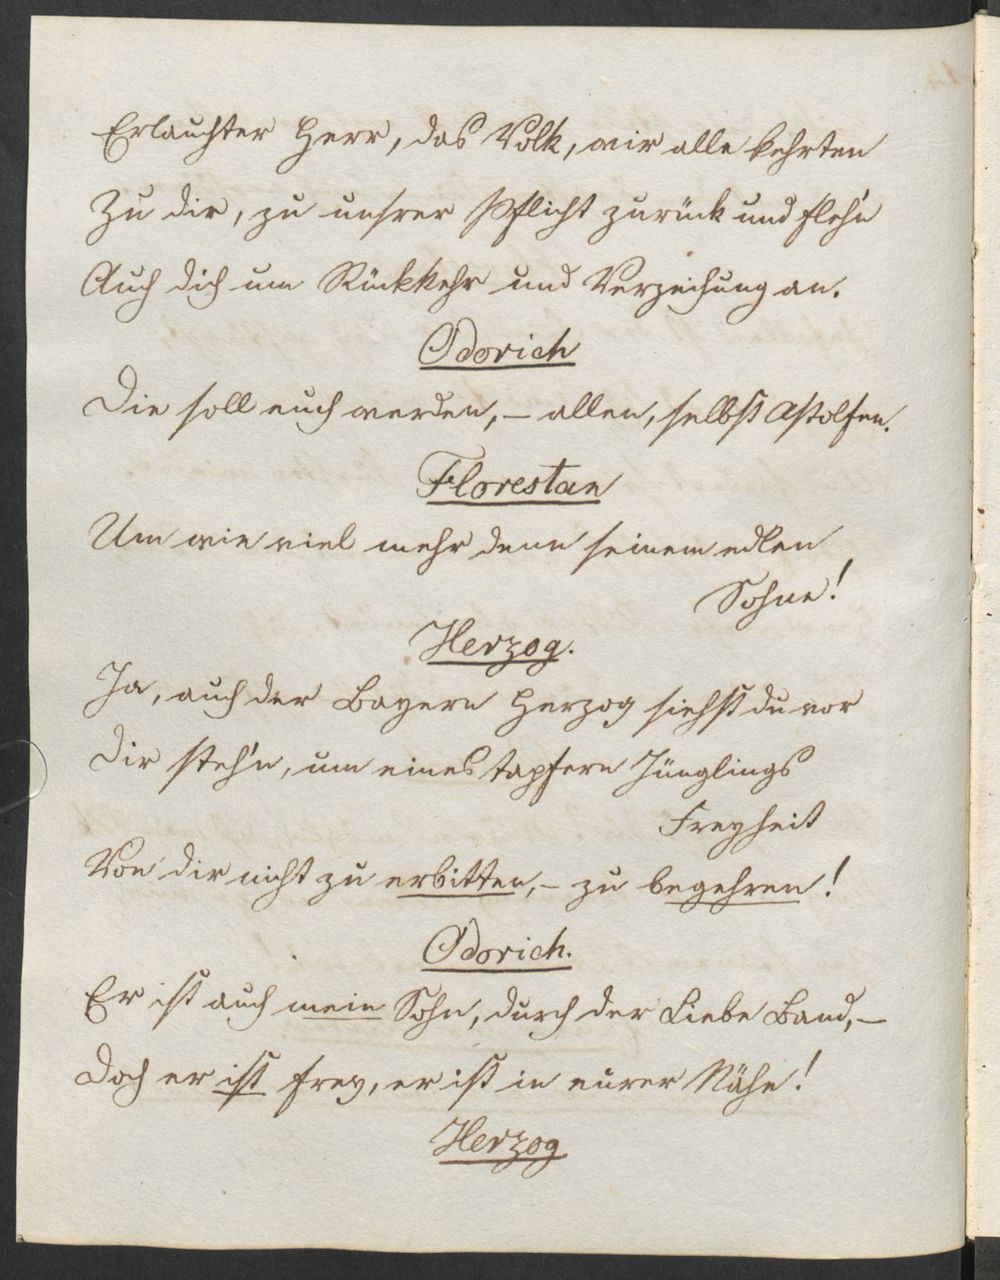 Erlauchter Herr, das Volk, wir alle kehrten
Zu dir, zu unsrer Pflicht zurück und fleh'n
Auch dich um Rückkehr und Verzeihung an.
Odorich
Die soll euch werden, – allen, selbst Astolfen.
Florestan
Um wie viel mehr denn seinem edlen
Sohne!
Herzog.
Ja, auch der Bayern Herzog siehst du vor
Dir steh'n, um eines tapfern Jünglings
Freyheit
Von dir nicht zu erbitten, – zu begehren!
Odorich.
Er ist auch mein Sohn, durch der Liebe Band, –
Doch er ist frey, er ist in eurer Nähe!
Herzog